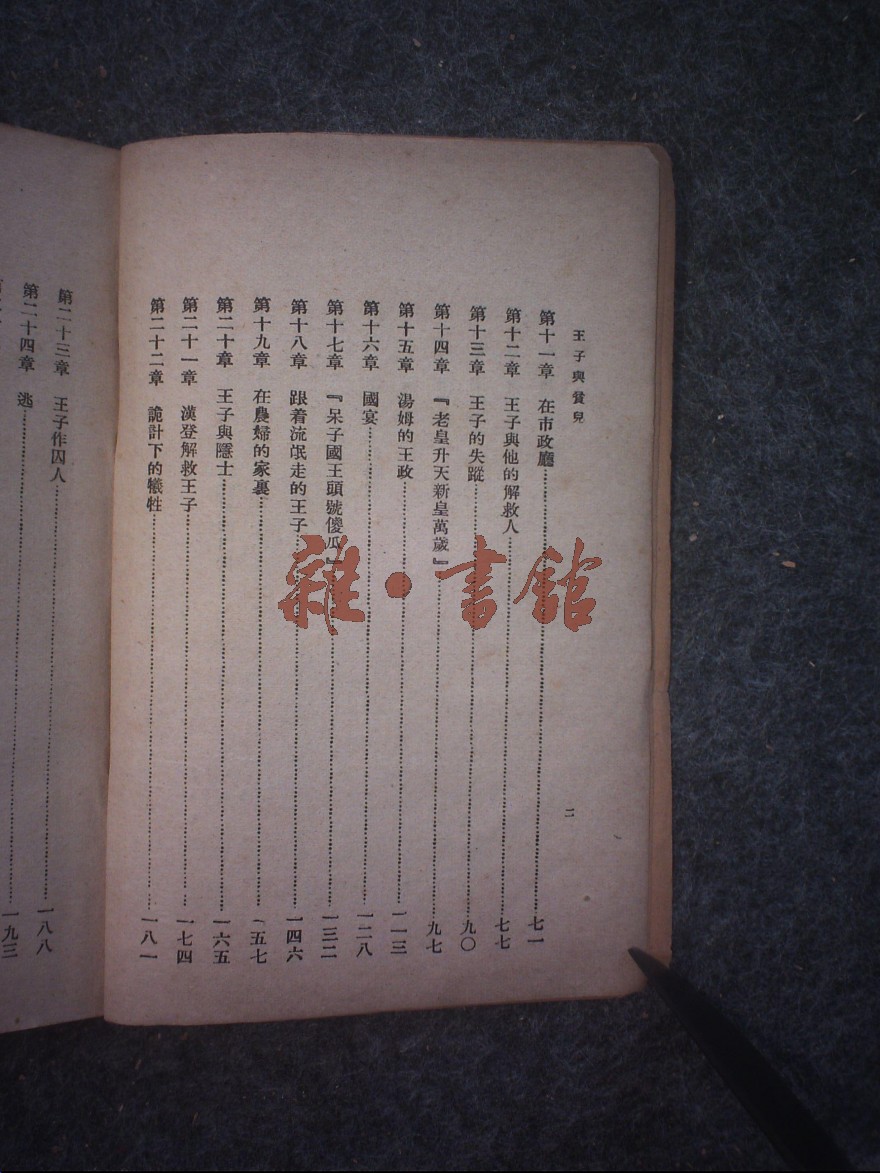 王子與貧兒
第十一章 在市政廳……七一
第十二章 王子與他的解救人……七七
第十三章 王子的失蹤……九〇
第十四章 『老皇升天新皇萬歲』……九七
第十五章 湯姆的王政……一一三
第十六章 國宴……一二八
第十七章 『呆子國王頭號傻瓜』……一三二
第十八章 跟着流氓走的王子……一四六
第十九章 在農婦的家裏……一五七
第二十章 王子與隱士……一六五
第二十一章 漢登解救王子……一七四
第二十二章 詭計下的犧牲……一八一
二
第二十三章 王子作囚人……一八八
第二十四章 逃……一九三
雜·書館